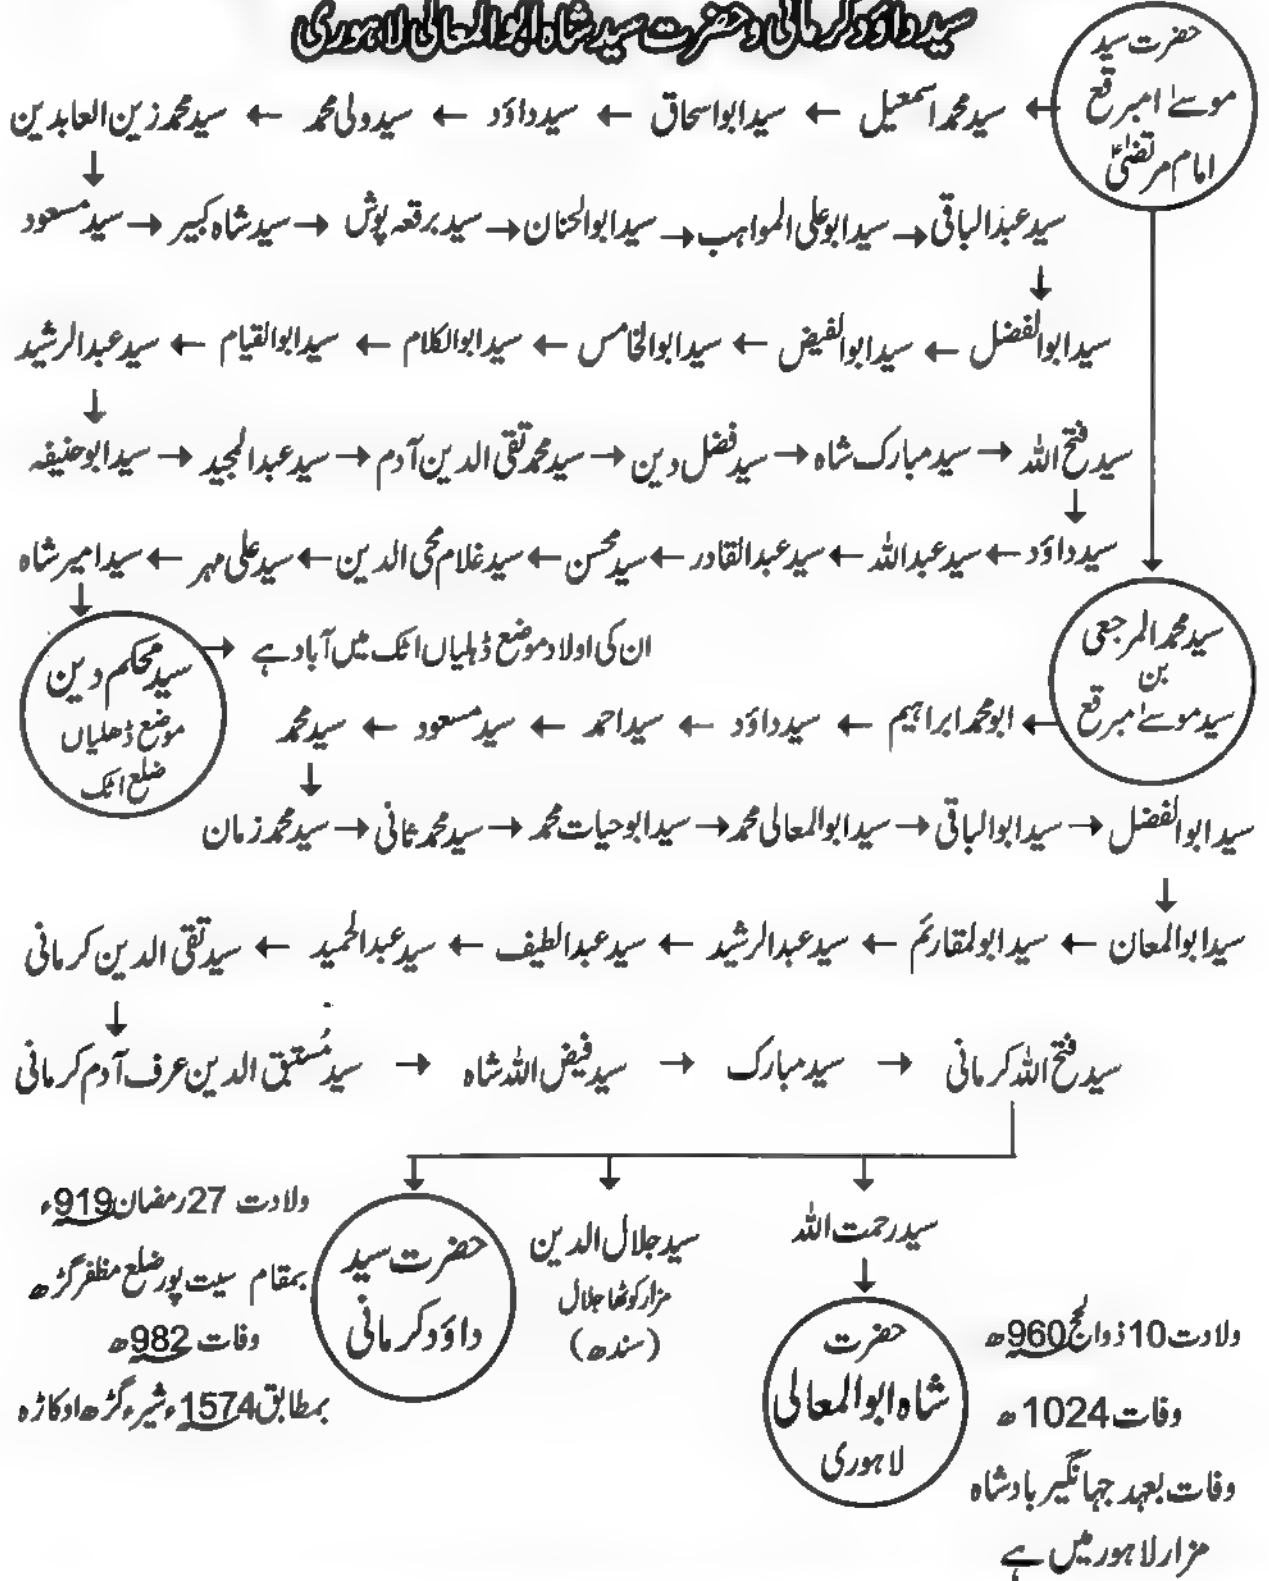 سید داؤد کرمانی و حضرت سید شاہ ابوالمعالی لاہوری
حضرت سید
موسےٰ امبرقع
امام مرتضیٰؑ
← سید محمد اسمعیل ← سید ابواسحاق ← سید داؤد ← سید ولی محمد ← سید محمد زین العابدین
↓
سید عبدالباقی → سید ابوعلی المواہب → سید ابوالحنان → سید برقعہ پوش → سید شاہ کبیر → سید مسعود
↓
سید ابوالفضل ← سید ابوالفیض ← سید ابوالخامس ← سید ابوالکلام ← سید ابوالقیام ← سید عبدالرشید
↓
سید فتح اللہ → سید مبارک شاہ → سید فضل دین → سید محمد تقی الدین آدم → سید عبدالمجید → سید ابوحنیفہ
↓
سید داؤد ← سید عبداللہ ← سید عبدالقادر ← سید محسن ← سید غلام محی الدین ← سید علی مہر ← سید امیر شاہ
↓
سید محکم دین
موضع ڈھلیاں
ضلع اٹک
→ ان کی اولاد موضع ڈہلیاں اٹک میں آباد ہے
سید محمد المرجعی
بن
سید موسےٰ مبرقع
← ابو محمد ابراہیم ← سید داؤد ← سید احمد ← سید مسعود ← سید محمد
↓
سید ابوالفضل → سید ابوالباقی → سید ابوالمعالی محمد → سید ابوحیات محمد → سید محمد ثانی → سید محمد زمان
↓
سید ابوالمعان ← سید ابولمقارئم ← سید عبدالرشید ← سید عبدالطیف ← سید عبدالحمید ← سید تقی الدین کرمانی
↓
سید فتح اللہ کرمانی → سید مبارک → سید فیض اللہ شاہ → سید مُستبق الدین عرف آدم کرمانی
سید رحمت اللہ
↓
حضرت
شاہ ابوالمعالی
لاہوری
ولادت 10 ذوالحج 960ھ
وفات 1024ھ
وفات بعہد جہانگیر بادشاہ
مزار لاہور میں ہے
سید جلال الدین
مزار کوٹھا جلال
(سندھ)
حضرت سید
داؤد کرمانی
ولادت 27 رمضان 919ء
بمقام سیت پور ضلع مظفر گڑھ
وفات 982ھ
بمطابق 1574ء شیر گڑھ اوکاڑہ